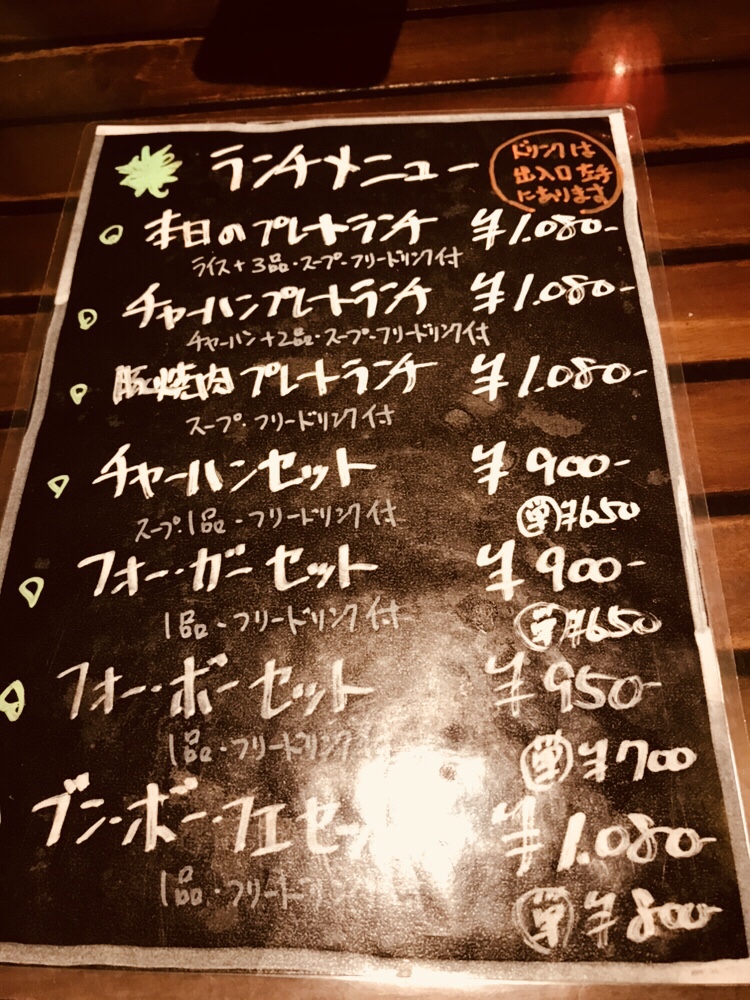 ランチメニュー
ドリンクは
出入口左手
にあります
本日のプレートランチ ¥1.080-
ライス+3品・スープ・フリードリンク付
チャーハンプレートランチ ¥1.080-
チャーハン+2品・スープ・フリードリンク付
豚焼肉プレートランチ ¥1.080-
スープ・フリードリンク付
チャーハンセット ¥900-
スープ・1品・フリードリンク付 単¥650
フォー・ガーセット ¥900-
1品・フリードリンク付 単¥650
フォー・ボーセット ¥950-
1品・フリードリンク付 単¥700
ブン・ボー・フエセ ¥1.080-
1品・フリードリンク 単¥800-